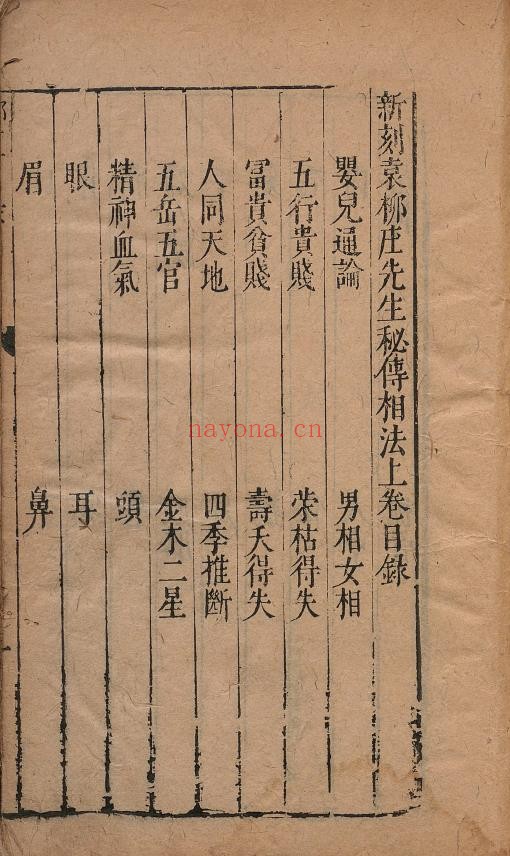 新刻袁柳庄先生秘傳相法上卷目錄
嬰兒通論 男相女相
五行貴賤 荣枯得失
富貴貧賤 壽夭得失
人同天地 四季推斷
五岳五官 金木二星
精神血氣 頭
眼 耳
眉 鼻
nayona.cn